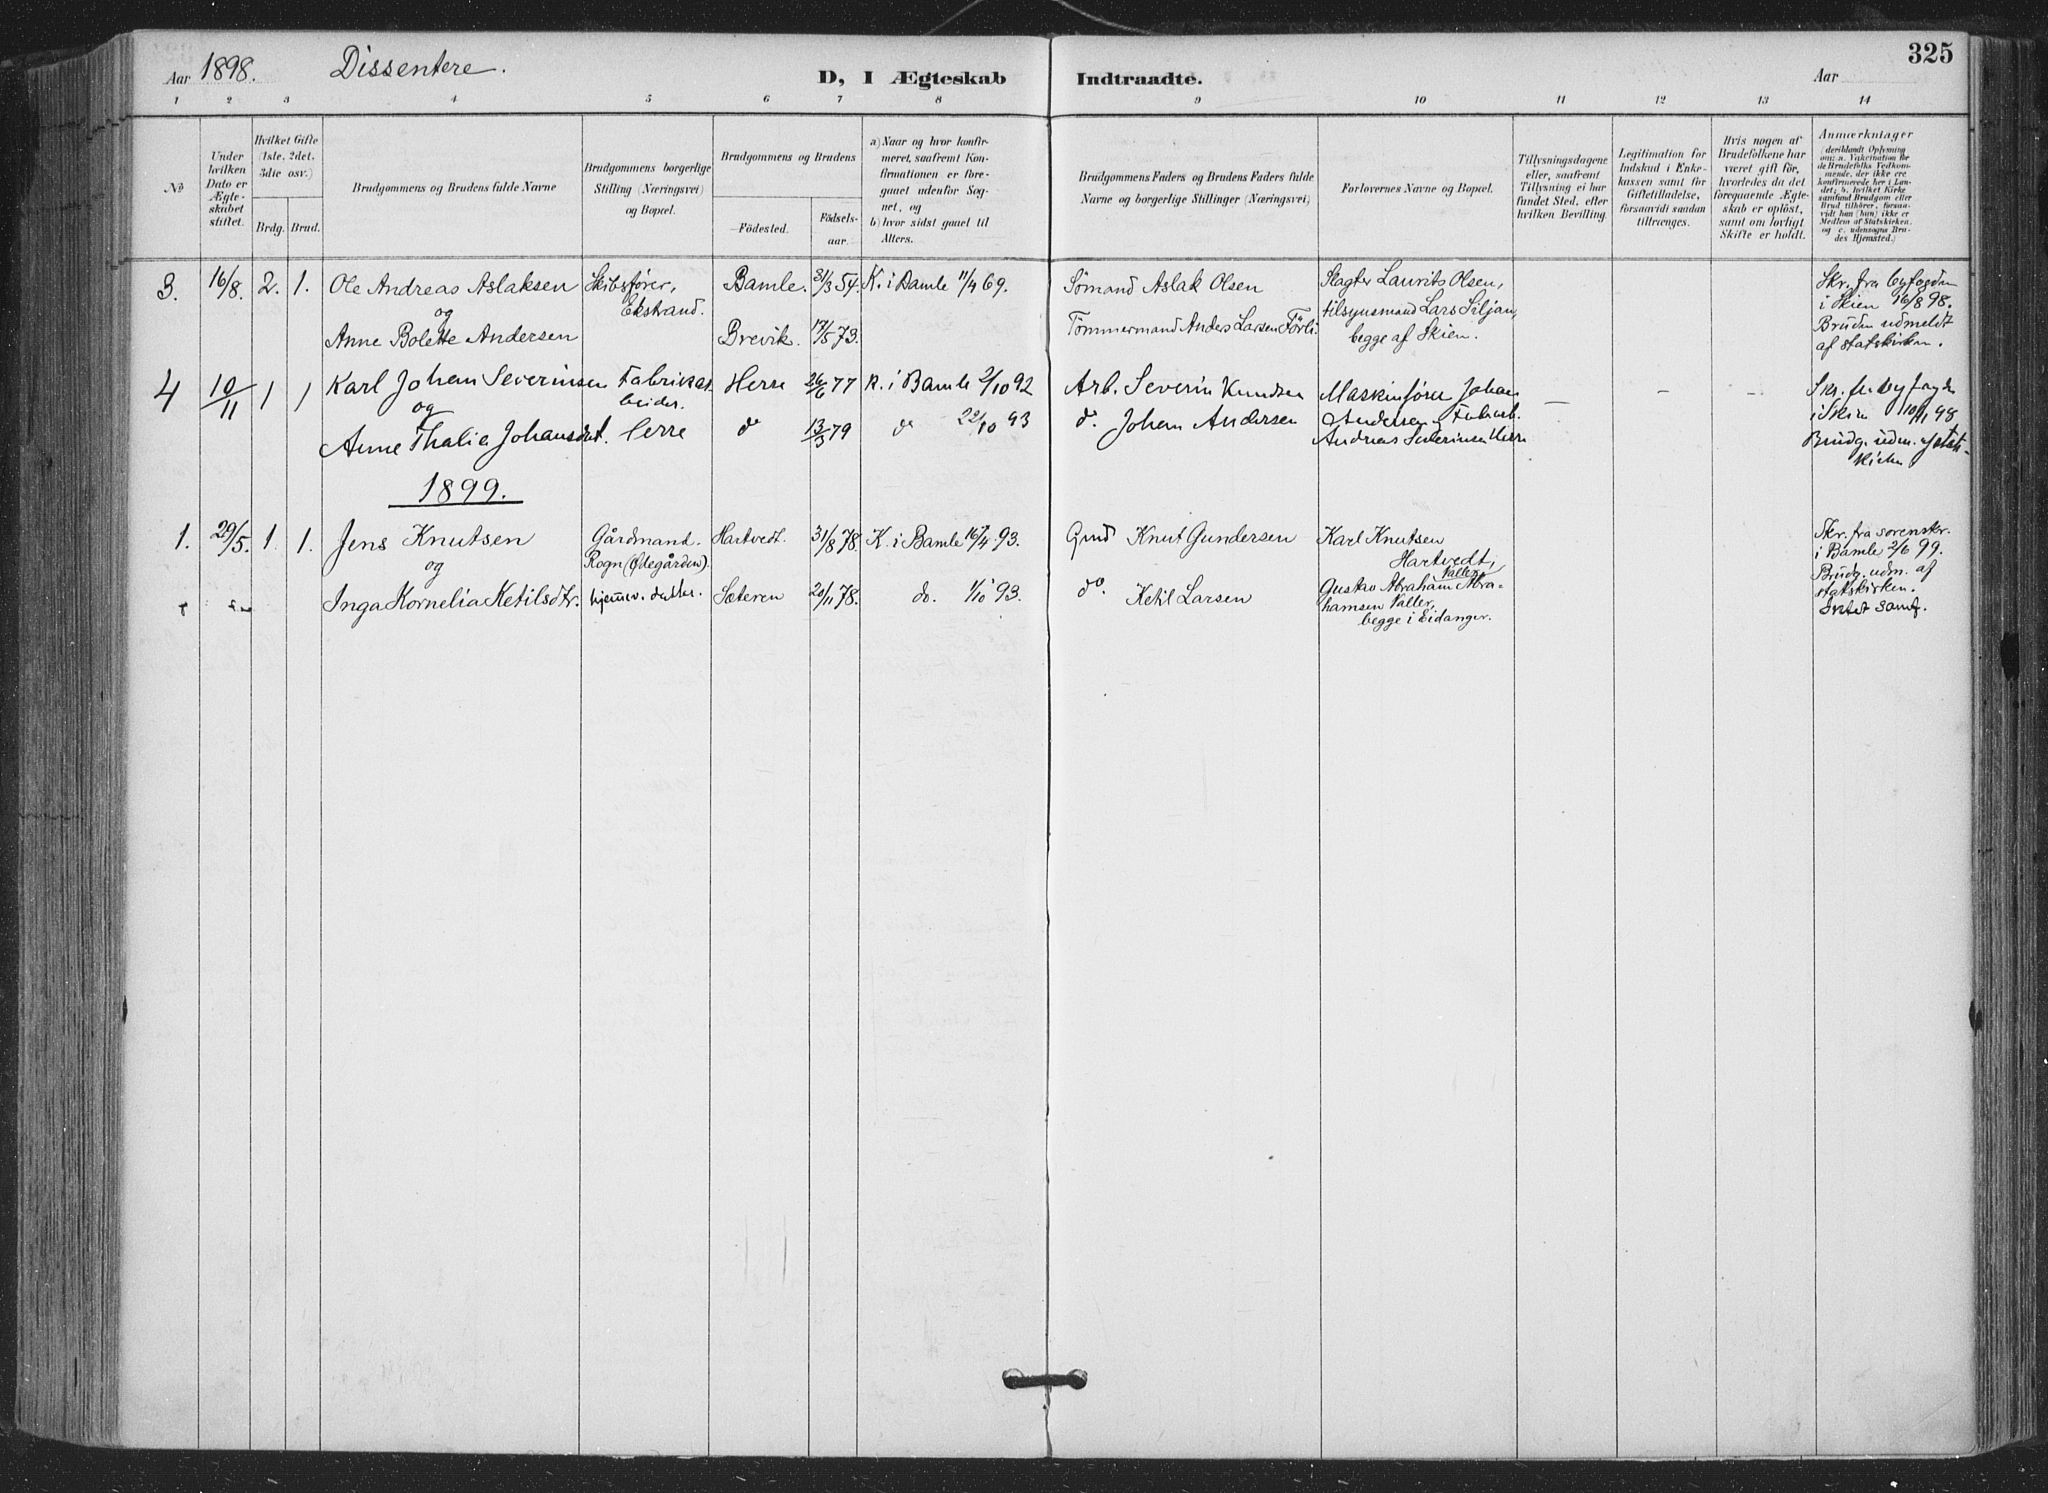 325
Aar 1898. Dissentere. D, I Ægteskab Indtraadte. Aar
1 2 3 4 5 6 7 8 9 10 11 12 13 14
No
Under hvilken Dato er Ægteskabet stiftet.
Hvilket Gifte (1ste, 2det, 3die osv.)
Brdg. Brud.
Brudgommens og Brudens fulde Navne
Brudgommens borgerlige Stilling (Næringsvei) og Bopæl.
Brudgommens og Brudens
Födested.
Födselsaar.
a) Naar og hvor konfirmeret, saafremt Konfirmationen er foregaaet udenfor Sognet, og
b) hvor sidst gaaet til Alters.
Brudgommens Faders og Brudens Faders fulde Navne og borgerlige Stillinger (Næringsvei)
Forlovernes Navne og Bopæl.
Tillysningsdagene eller, saafremt Tillysning ei har fundet Sted, efter hvilken Bevilling.
Legitimation for Indskud i Enkekassen samt for Giftetilladelse, forsaavidt saadan tiltrænges.
Hvis nogen af Brudefolkene har været gift för, hvorledes da det foregaaende Ægteskab er oplöst, samt om lovligt Skifte er holdt.
Anmærkninger (deriblandt Oplysning om: a. Vakcination for de Brudefolks Vedkommende, der ikke ere konfirmerede her i Landet; b. hvilket Kirkesamfund Brudgom eller Brud tilhörer, forsaavidt han (hun) ikke er Medlem af Statskirken, og c. udensogns Brudes Hjemsted.)
3. 16/8. 2. 1. Ole Andreas Aslaksen Skibsfører, Bamle. 31/3 54. K. i Bamle 11/4 69. Sømand Aslak Olsen Slagter Laurits Olsen, Skr. fra byfogden
og Ekstrand. tilsynsmand Lars Siljan, i Skien 16/8 98.
Anne Bolette Andersen Brevik. 17/5 73. Tømmermand Anders Larsen Førli. begge af Skien. Bruden udmeldt
af statskirken.
4 10/11 1 1 Karl Johan Severinsen Fabriksar- Herre 26/6 77 K. i Bamle 2/10 92 Arb. Severin Knudsen Maskinfører Johan — — — Skr. fr. byfogden
og beider. Andersen og Fabarb. i Skien 10/11 98
Anne Thalia Johansdat. Herre do 13/3 79 do 22/10 93 do. Johan Andersen Andreas Severinsen Herre Brudg. udm. af stats-
kirken
1899.
1. 29/5. 1. 1. Jens Knutsen Gårdmand. Hartvedt. 31/8 78. K. i Bamle 16/4 93. Gmd Knut Gundersen Karl Knutsen Skr. fra sorenskr.
og Rogn (Ødegården). Hartvedt, i Bamle 2/6 99.
Valler Brudg. udm. af
Inga Kornelia Ketilsdtr. hjemmev. datter. Sæteren 20/11 78. do. 1/10 93. do. Ketil Larsen Gustav Abraham Abra- statskirken.
hamsen Valler, Intet samf.
begge i Eidanger.